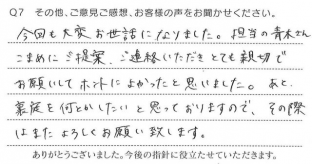 Q7 その他、ご意見ご感想、お客様の声をお聞かせください。
今回も大変お世話になりました。担当の青木さん
こまめにご提案、ご連絡いただき とても親切で
お願いして ホントに よかったと思いました。あと、
裏庭を何とかしたいと思っておりますので、その際
はまた よろしくお願い致します。
ありがとうございました。今後の指針に役立たせていただきます。